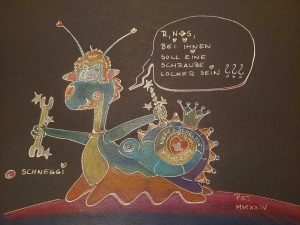 R, N, S,
BEI IHNEN
SOLL EINE
SCHRAUBE
LOCKER SEIN ???
SCHNEGGI
MMXXIV